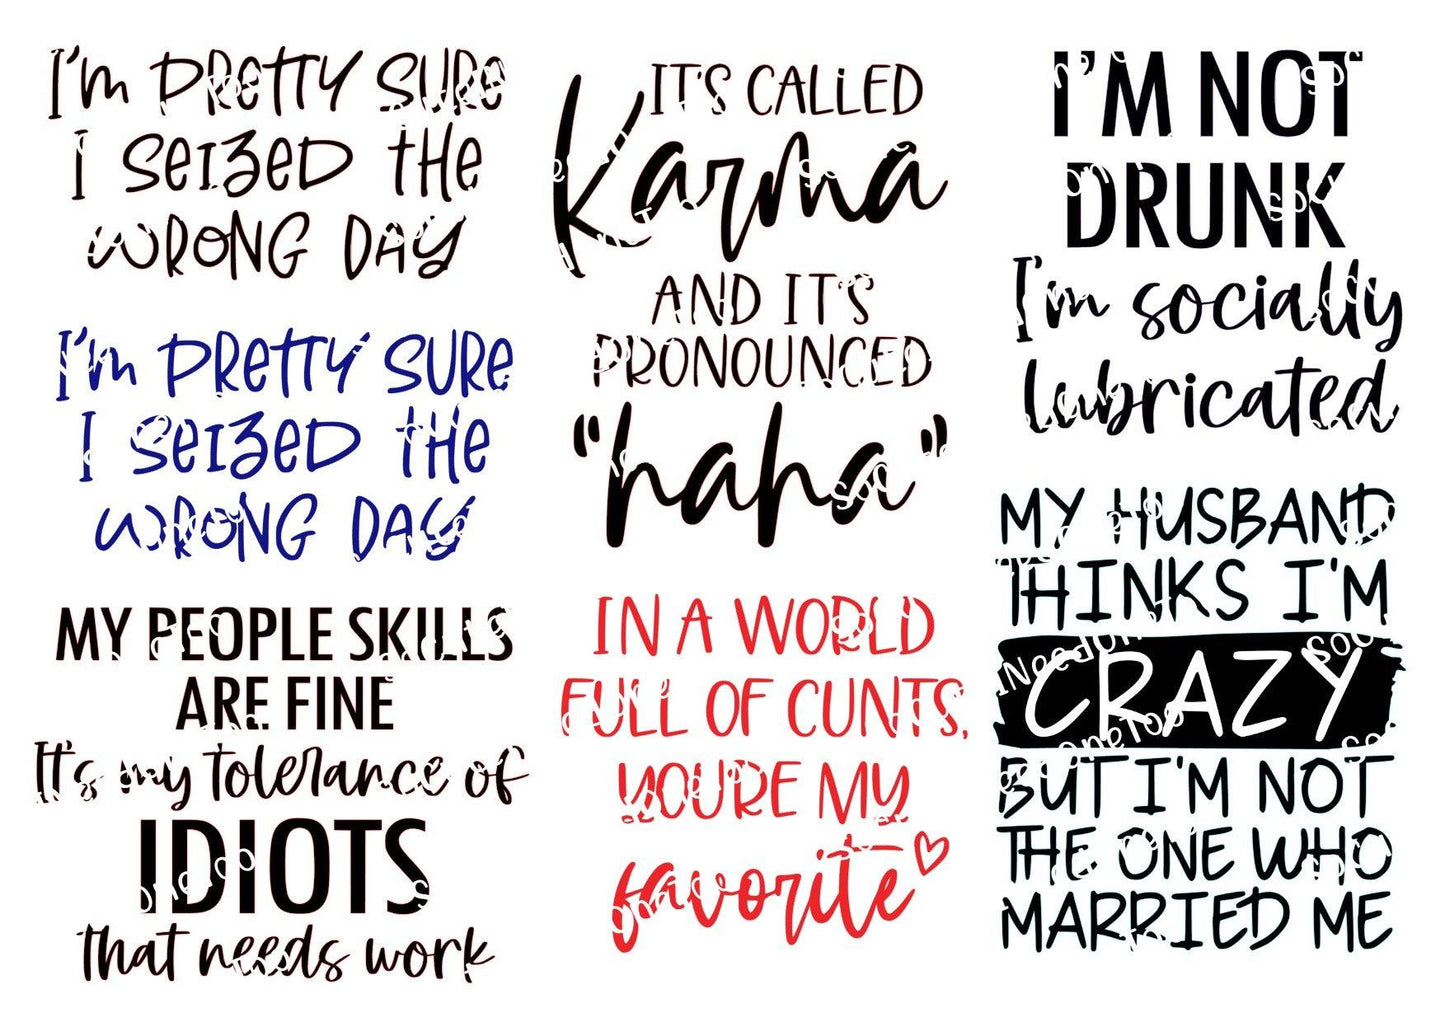 I'm PRETTY SURE
I SEIZED THE
WRONG DAY
I'm PRETTY SURE
I SEIZED THE
WRONG DAY
MY PEOPLE SKILLS
ARE FINE
It's my tolerance of
IDIOTS
that needs work
IT'S CALLED
Karma
AND IT'S
PRONOUNCED
"haha"
IN A WORLD
FULL OF CUNTS,
YOU'RE MY
favorite
I'M NOT
DRUNK
I'm socially
lubricated
MY HUSBAND
THINKS I'M
CRAZY
BUT I'M NOT
THE ONE WHO
MARRIED ME